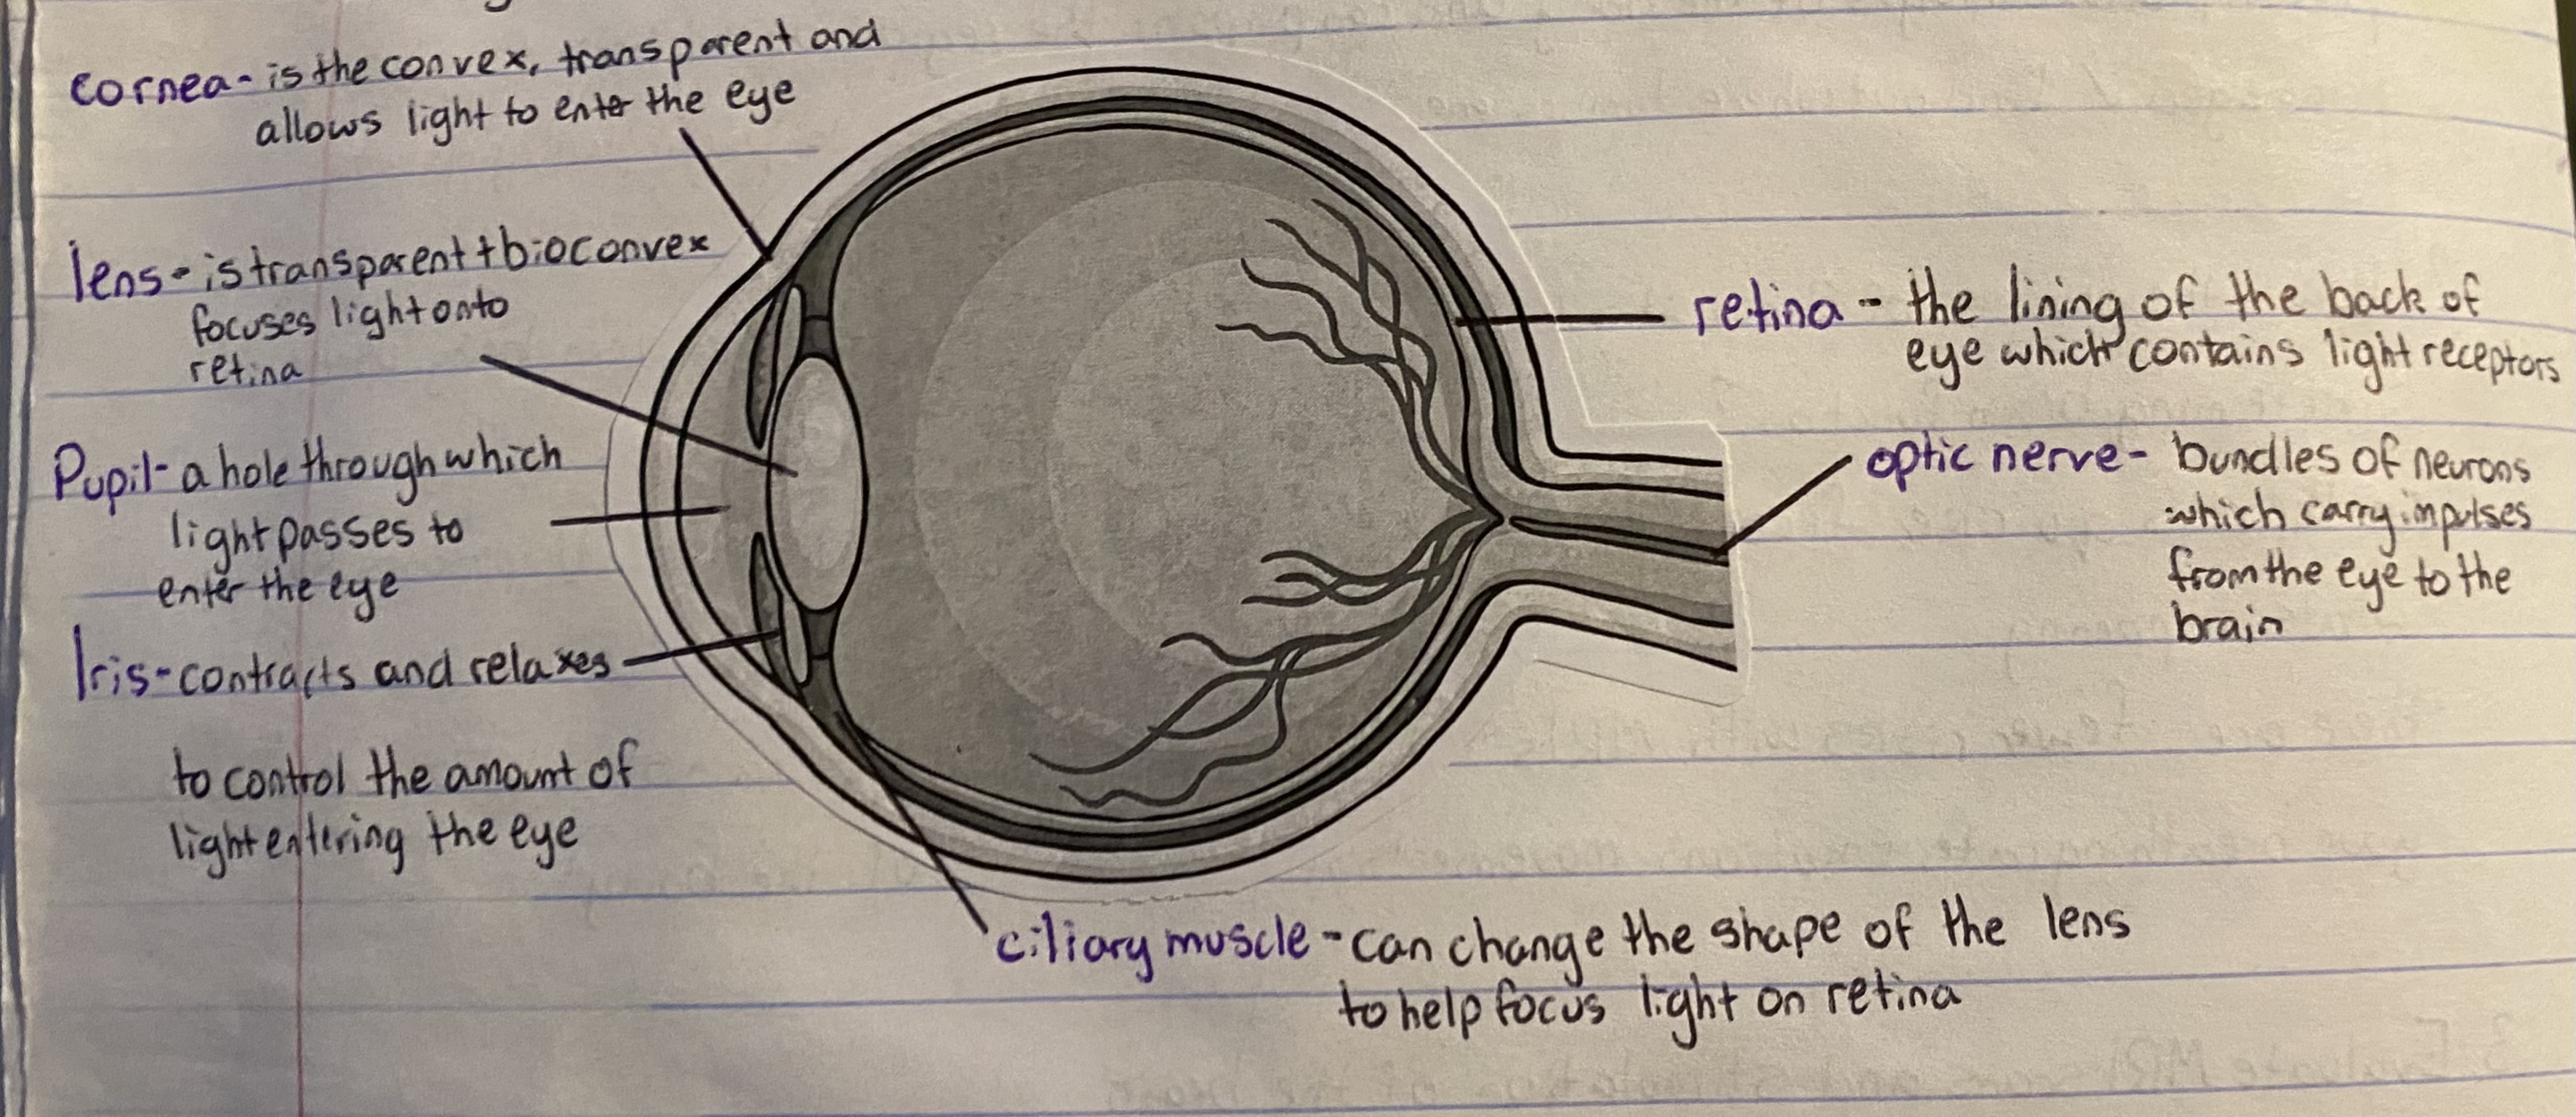 cornea - is the convex, transparent and
allows light to enter the eye
lens - is transparent + bioconvex
focuses light onto
retina
Pupil - a hole through which
light passes to
enter the eye
Iris - contracts and relaxes
to control the amount of
light entering the eye
retina - the lining of the back of
eye which contains light receptors
optic nerve - bundles of neurons
which carry impulses
from the eye to the
brain
ciliary muscle - can change the shape of the lens
to help focus light on retina